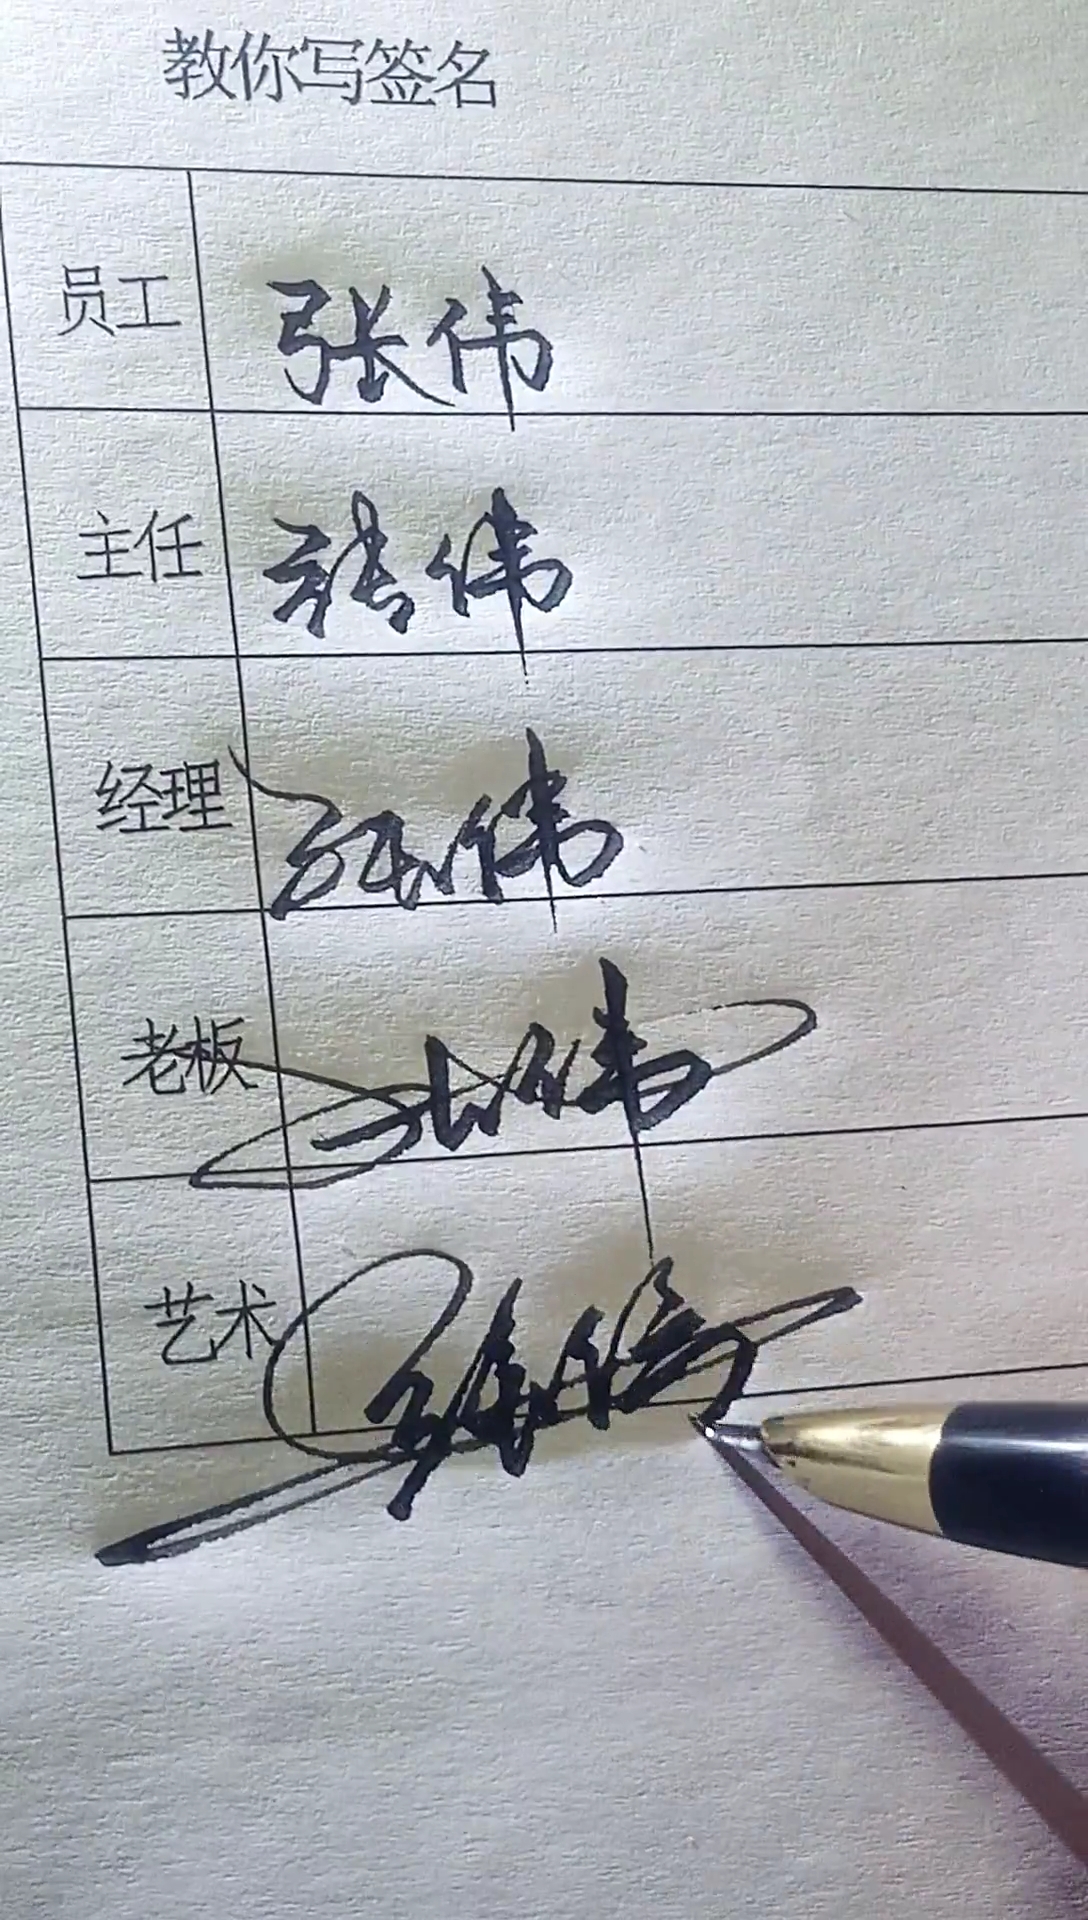 教你写签名
员工 张伟
主任 张伟
经理 张伟
老板 张伟
艺术 张伟